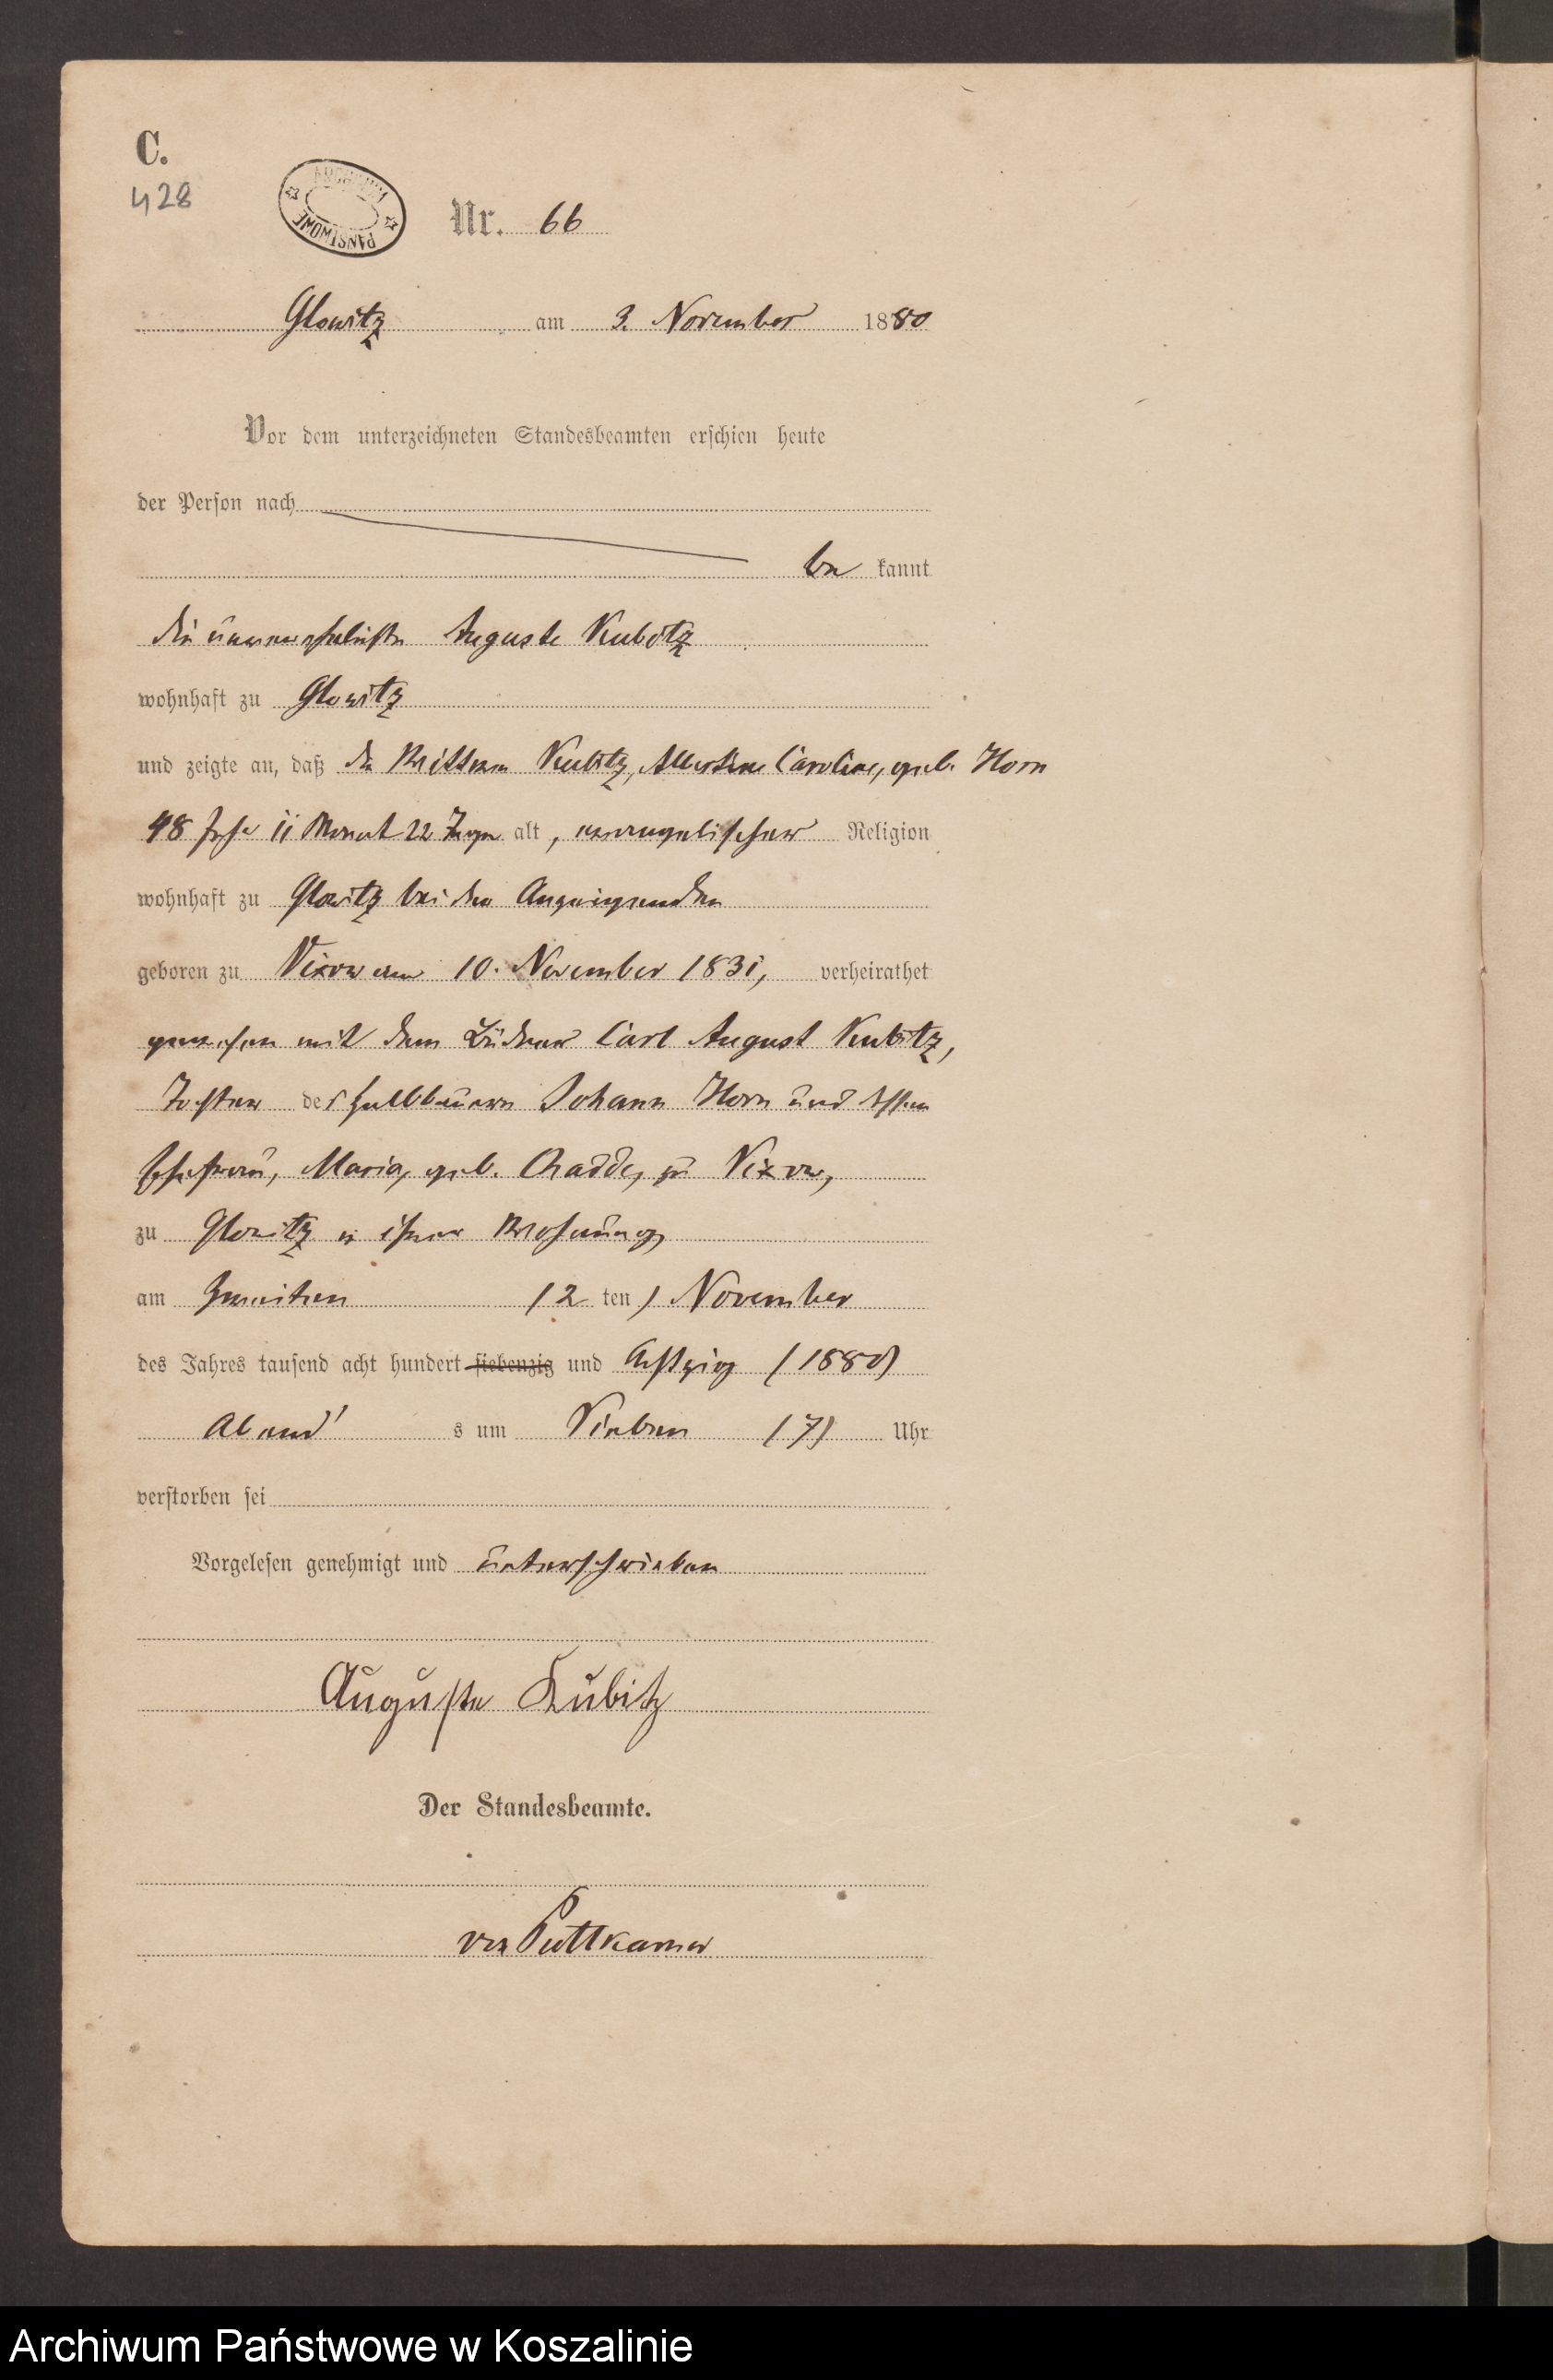 C.
428
ARCHIWUM PAŃSTWOWE
Nr. 66
Glowitz am 3. November 1880
Vor dem unterzeichneten Standesbeamten erschien heute
der Person nach
be kannt
die unverehelichte Auguste Kubitz
wohnhaft zu Glowitz
und zeigte an, daß die Wittwe Kubitz, Albertine Caroline, geb. Horn
48 Jahr 11 Monat 22 Tage alt, evangelischer Religion
wohnhaft zu Glowitz bei der Anzeigenden
geboren zu Vixow am 10. November 1831, verheirathet
gewesen mit dem Büdner Carl August Kubitz,
Tochter des Halbbauern Johann Horn und dessen
Ehefrau, Maria, geb. Radde, zu Vixow,
zu Glowitz in ihrer Wohnung
am Zweiten (2 ten) November
des Jahres tausend acht hundert siebenzig und Achtzig (1880)
Abend s um Sieben (7) Uhr
verstorben sei
Vorgelesen genehmigt und unterschrieben
Auguste Kubitz
Der Standesbeamte.
von Puttkamer
Archiwum Państwowe w Koszalinie